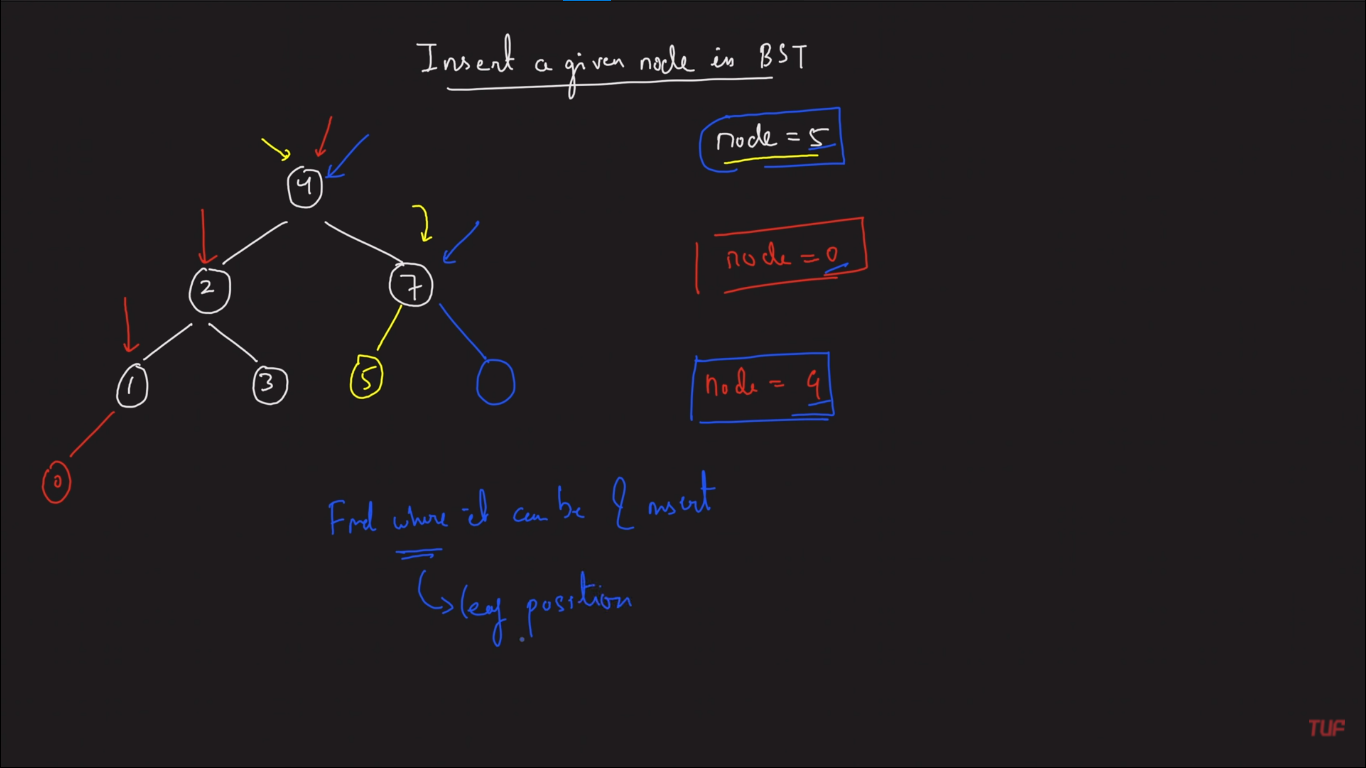 Insert a given node in BST
node = 5
4
node = 0
2
7
1
3
5
node = 9
0
Find where it can be & insert
leaf position
TUF